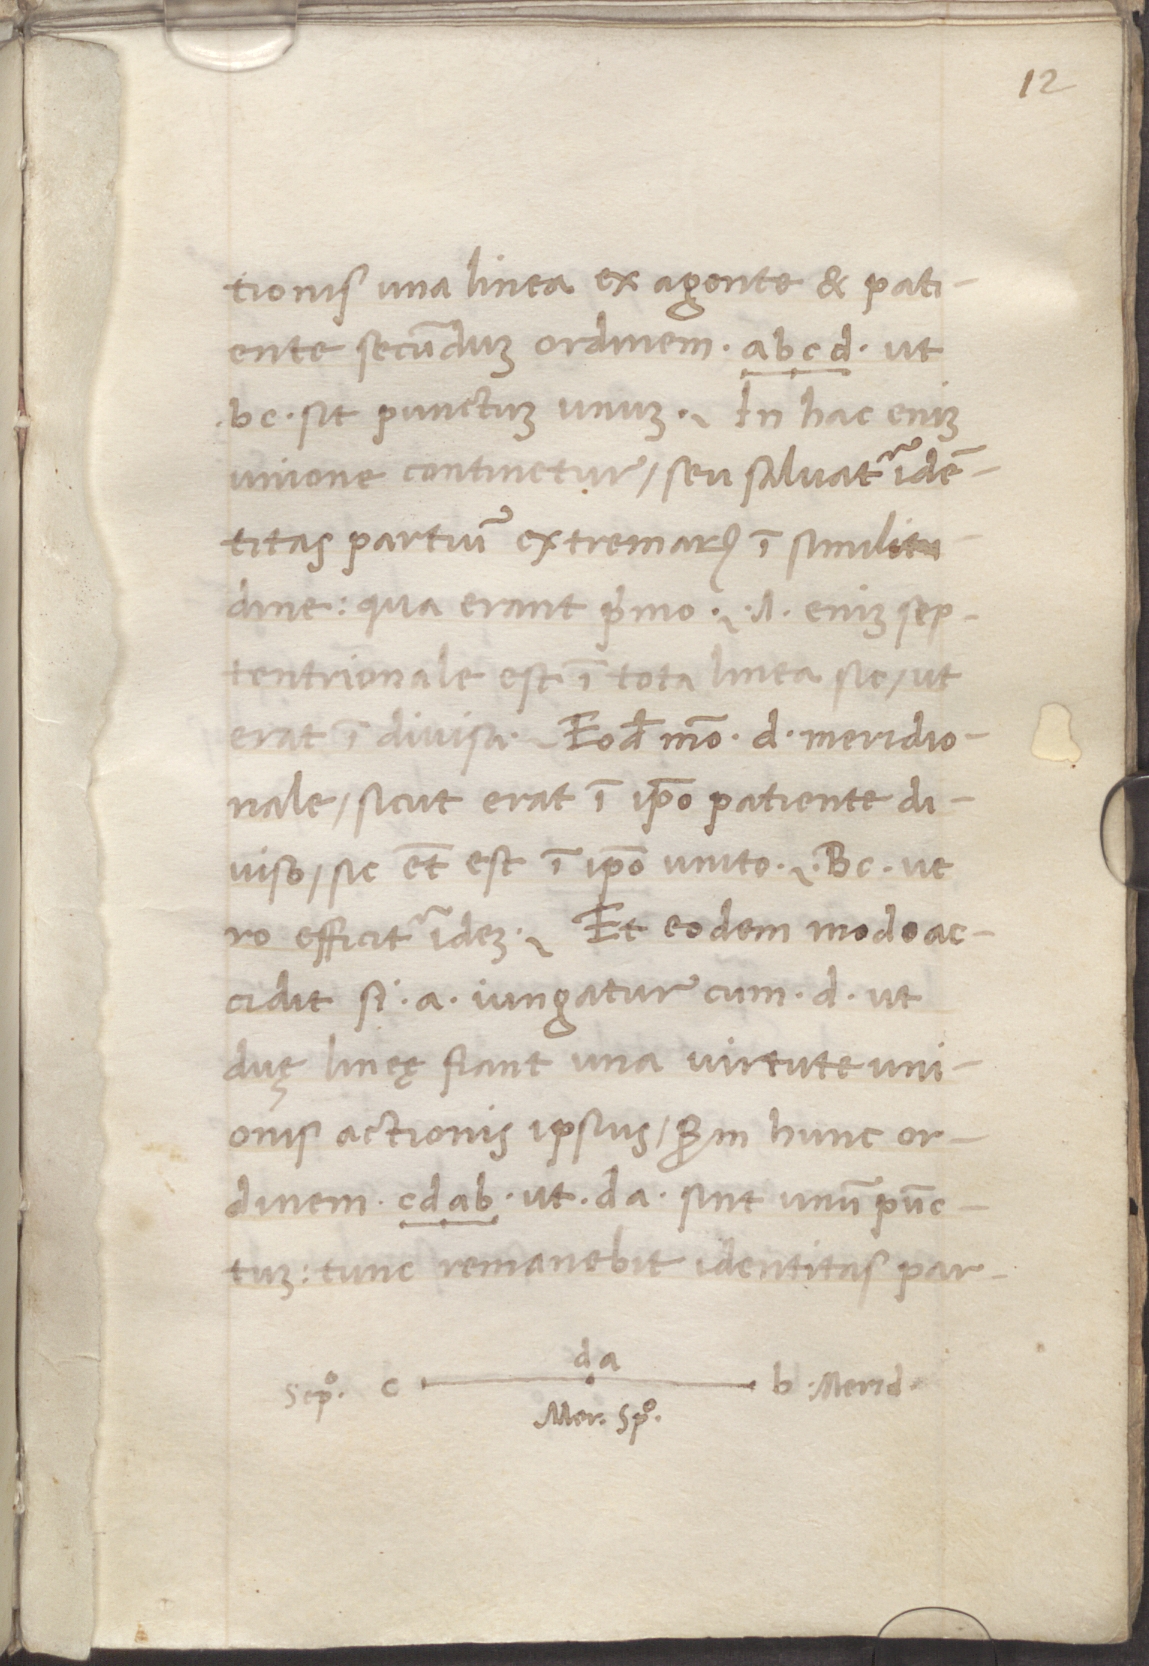 12
tionis una linea ex agente & pati-
ente secūduȝ ordinem · abcd · ut
·bc· sit punctuȝ unuȝ · In hac eniȝ
unione continetur / seu saluatr̃ idē-
titas partiū extremaꝝ ī similitu-
dine : qua erant p̃mo · .A. eniȝ sep-
tentrionale est ī tota linea sic / ut
erat ī diuisa · Eod̄ mō · d · meridio-
nale / sicut erat ī ip̄o patiente di-
uiso / sic ēt est ī ip̄o unito · .Bc. ue
ro efficitr̃ ideȝ · Et eodem modo ac-
cidit si · a · iungatur cum · d · ut
duę lineę fiant una uirtute uni-
onis actionis ipsius / hunc or-
dinem · cdab · ut · da · sint unū pūc-
tuȝ : tunc remanebit identitas par-
da
Sepº. c b Merid.
Mer. Spº.